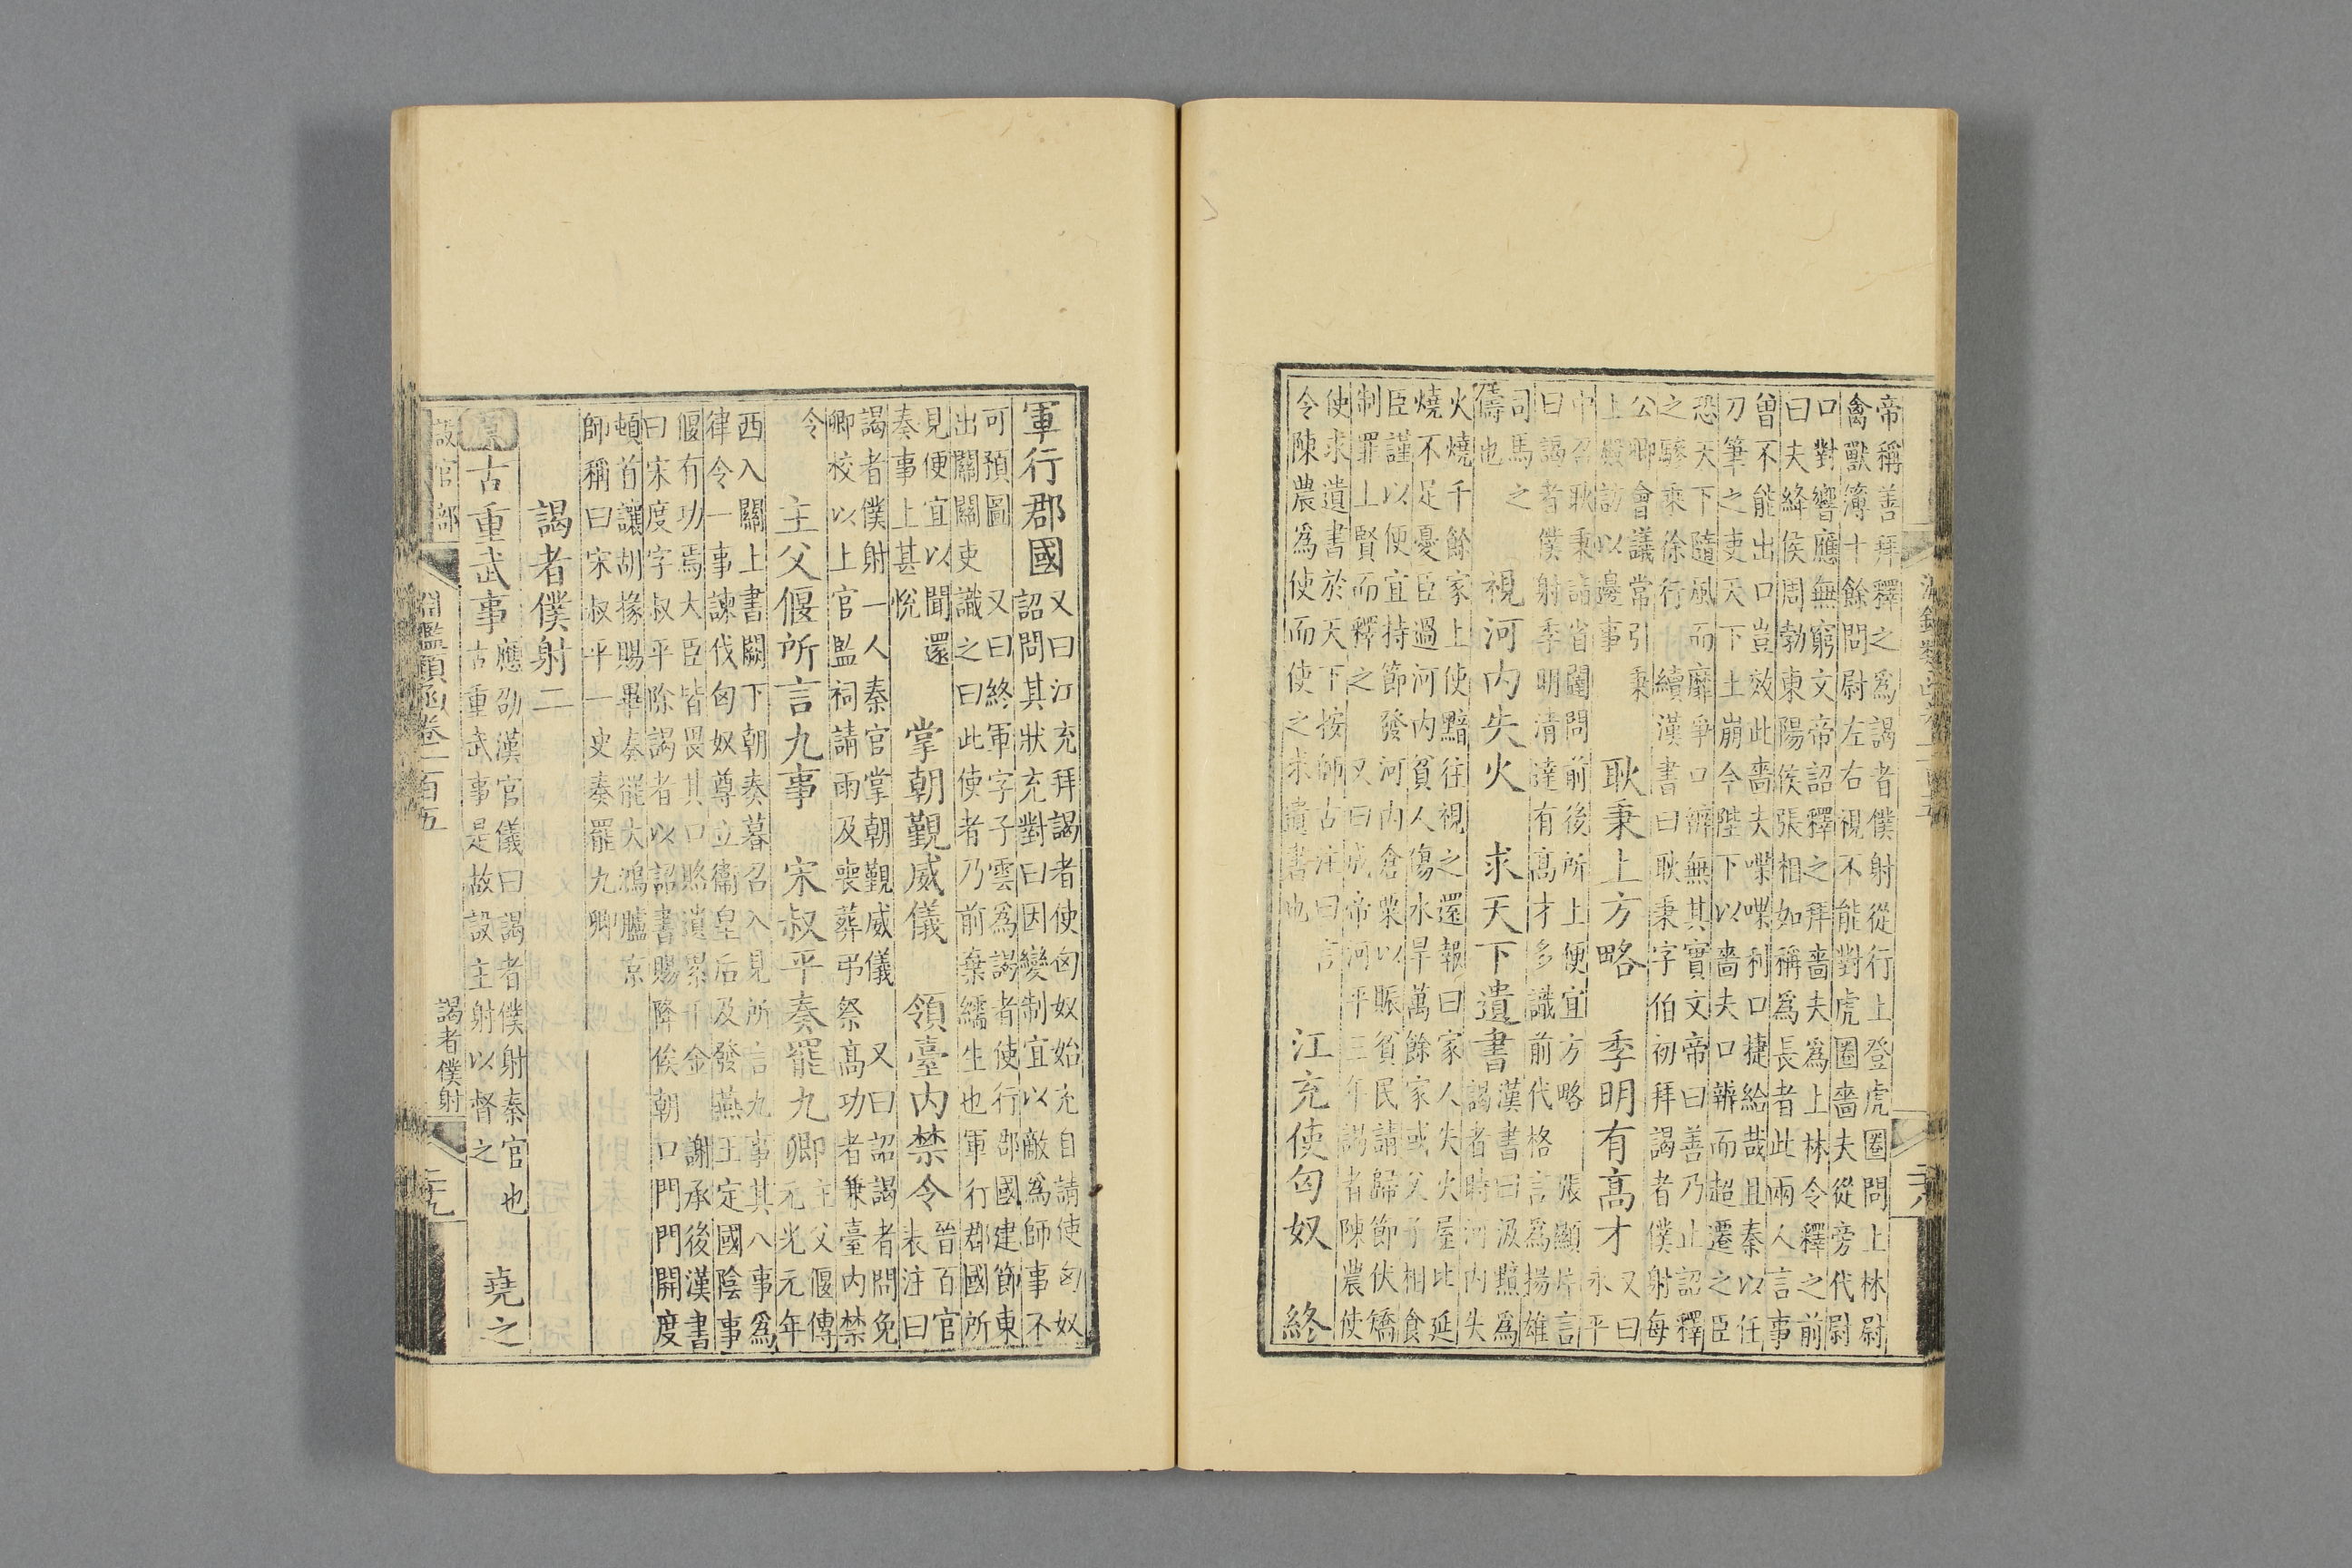 帝稱善拜釋之為謁者僕射從行上登虎圈問上林尉
禽獸簿十餘問尉左右視不能對虎圈嗇夫從旁代尉
口對響應無窮文帝詔釋之拜嗇夫為上林令釋之前
曰夫絳侯周勃東陽侯張相如稱為長者此兩人言事
曾不能出口豈效此嗇夫喋喋利口捷給哉且秦以任
刀筆之吏天下土崩今陛下以嗇夫口辨而超遷之臣
恐天下隨風而靡爭口辨無其實文帝曰善乃止詔釋
之驂乘徐行
續漢書曰耿秉字伯初拜謁者僕射每
公卿會議常引秉
上殿訪以邊事
耿秉上方略
季明有高才
又曰
永平
中召耿秉詣省闥問前後所上便宜方略
曰謁者僕射季明清達有高才多識前代格言為揚雄
張顯片言
司馬之
儔也
視河內失火
求天下遺書
漢書曰汲黯為
謁者時河內失
火燒千餘家上使黯往視之還報曰家人失火屋比延
燒不足憂臣過河內貧人傷水旱萬餘家或父子相食
臣謹以便宜持節發河內倉粟以賑貧民請歸節伏矯
制罪上賢而釋之
又曰成帝河平三年謁者陳農使
使求遺書於天下按師古注曰言
令陳農為使而使之求遺書也
江充使匈奴
終
軍行郡國
又曰江充拜謁者使匈奴始充自請使匈奴
詔問其狀充對曰因變制宜以敵為師事不
可預圖
又曰終軍字子雲為謁者使行郡國建節東
出關關吏識之曰此使者乃前棄繻生也軍行郡國所
見便宜以聞還
奏事上甚悅
掌朝覲威儀
領臺內禁令
晉百官
表注曰
謁者僕射一人秦官掌朝覲威儀
卿校以上官監祠請雨及喪葬弔祭高功者兼臺內禁
又曰詔謁者問免
令
主父偃所言九事
宋叔平奏罷九卿
主父偃傳
元光元年
西入關上書闕下朝奏暮召入見所言九事其八事為
律令一事諫伐匈奴尊立衛皇后及發燕王定國陰事
偃有功焉大臣皆畏其口賂遺累千金
謝承後漢書
曰宋度字叔平除謁者以詔書賜降侯朝口門門開度
頓首讓胡掾賜畢奏罷大鴻臚京
師稱曰宋叔平一史奏罷九卿
謁者僕射二
原
古重武事
應劭漢官儀曰謁者僕射秦官也
古重武事是故設主射以督之
堯之
設官部
淵鑑類函卷一百五
謁者僕射